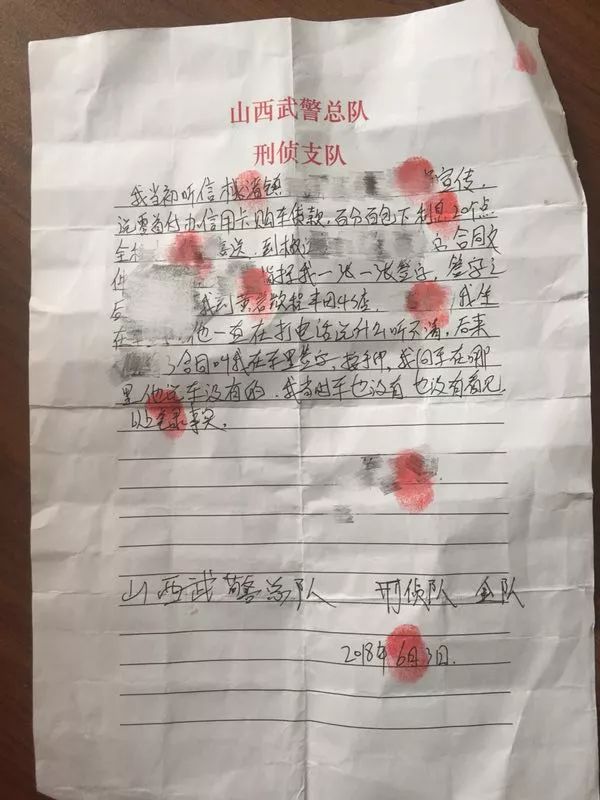 山西武警总队
刑侦支队
我当初听信 宣传,
说零首付办信用卡购车贷款,百分百包下利息20个点
全 到 合同文
他 指挥我一张一张签字,签字之
后 我到 4S店, 我坐
在 他一直在打电话说什么听不清,后来
了合同叫我在车里签字,按手印,我问车在哪
里他说车没有的,我当时车也没有也没有看见
以上是事实。
山西武警总队 刑侦队 全队
2018年6月3日.